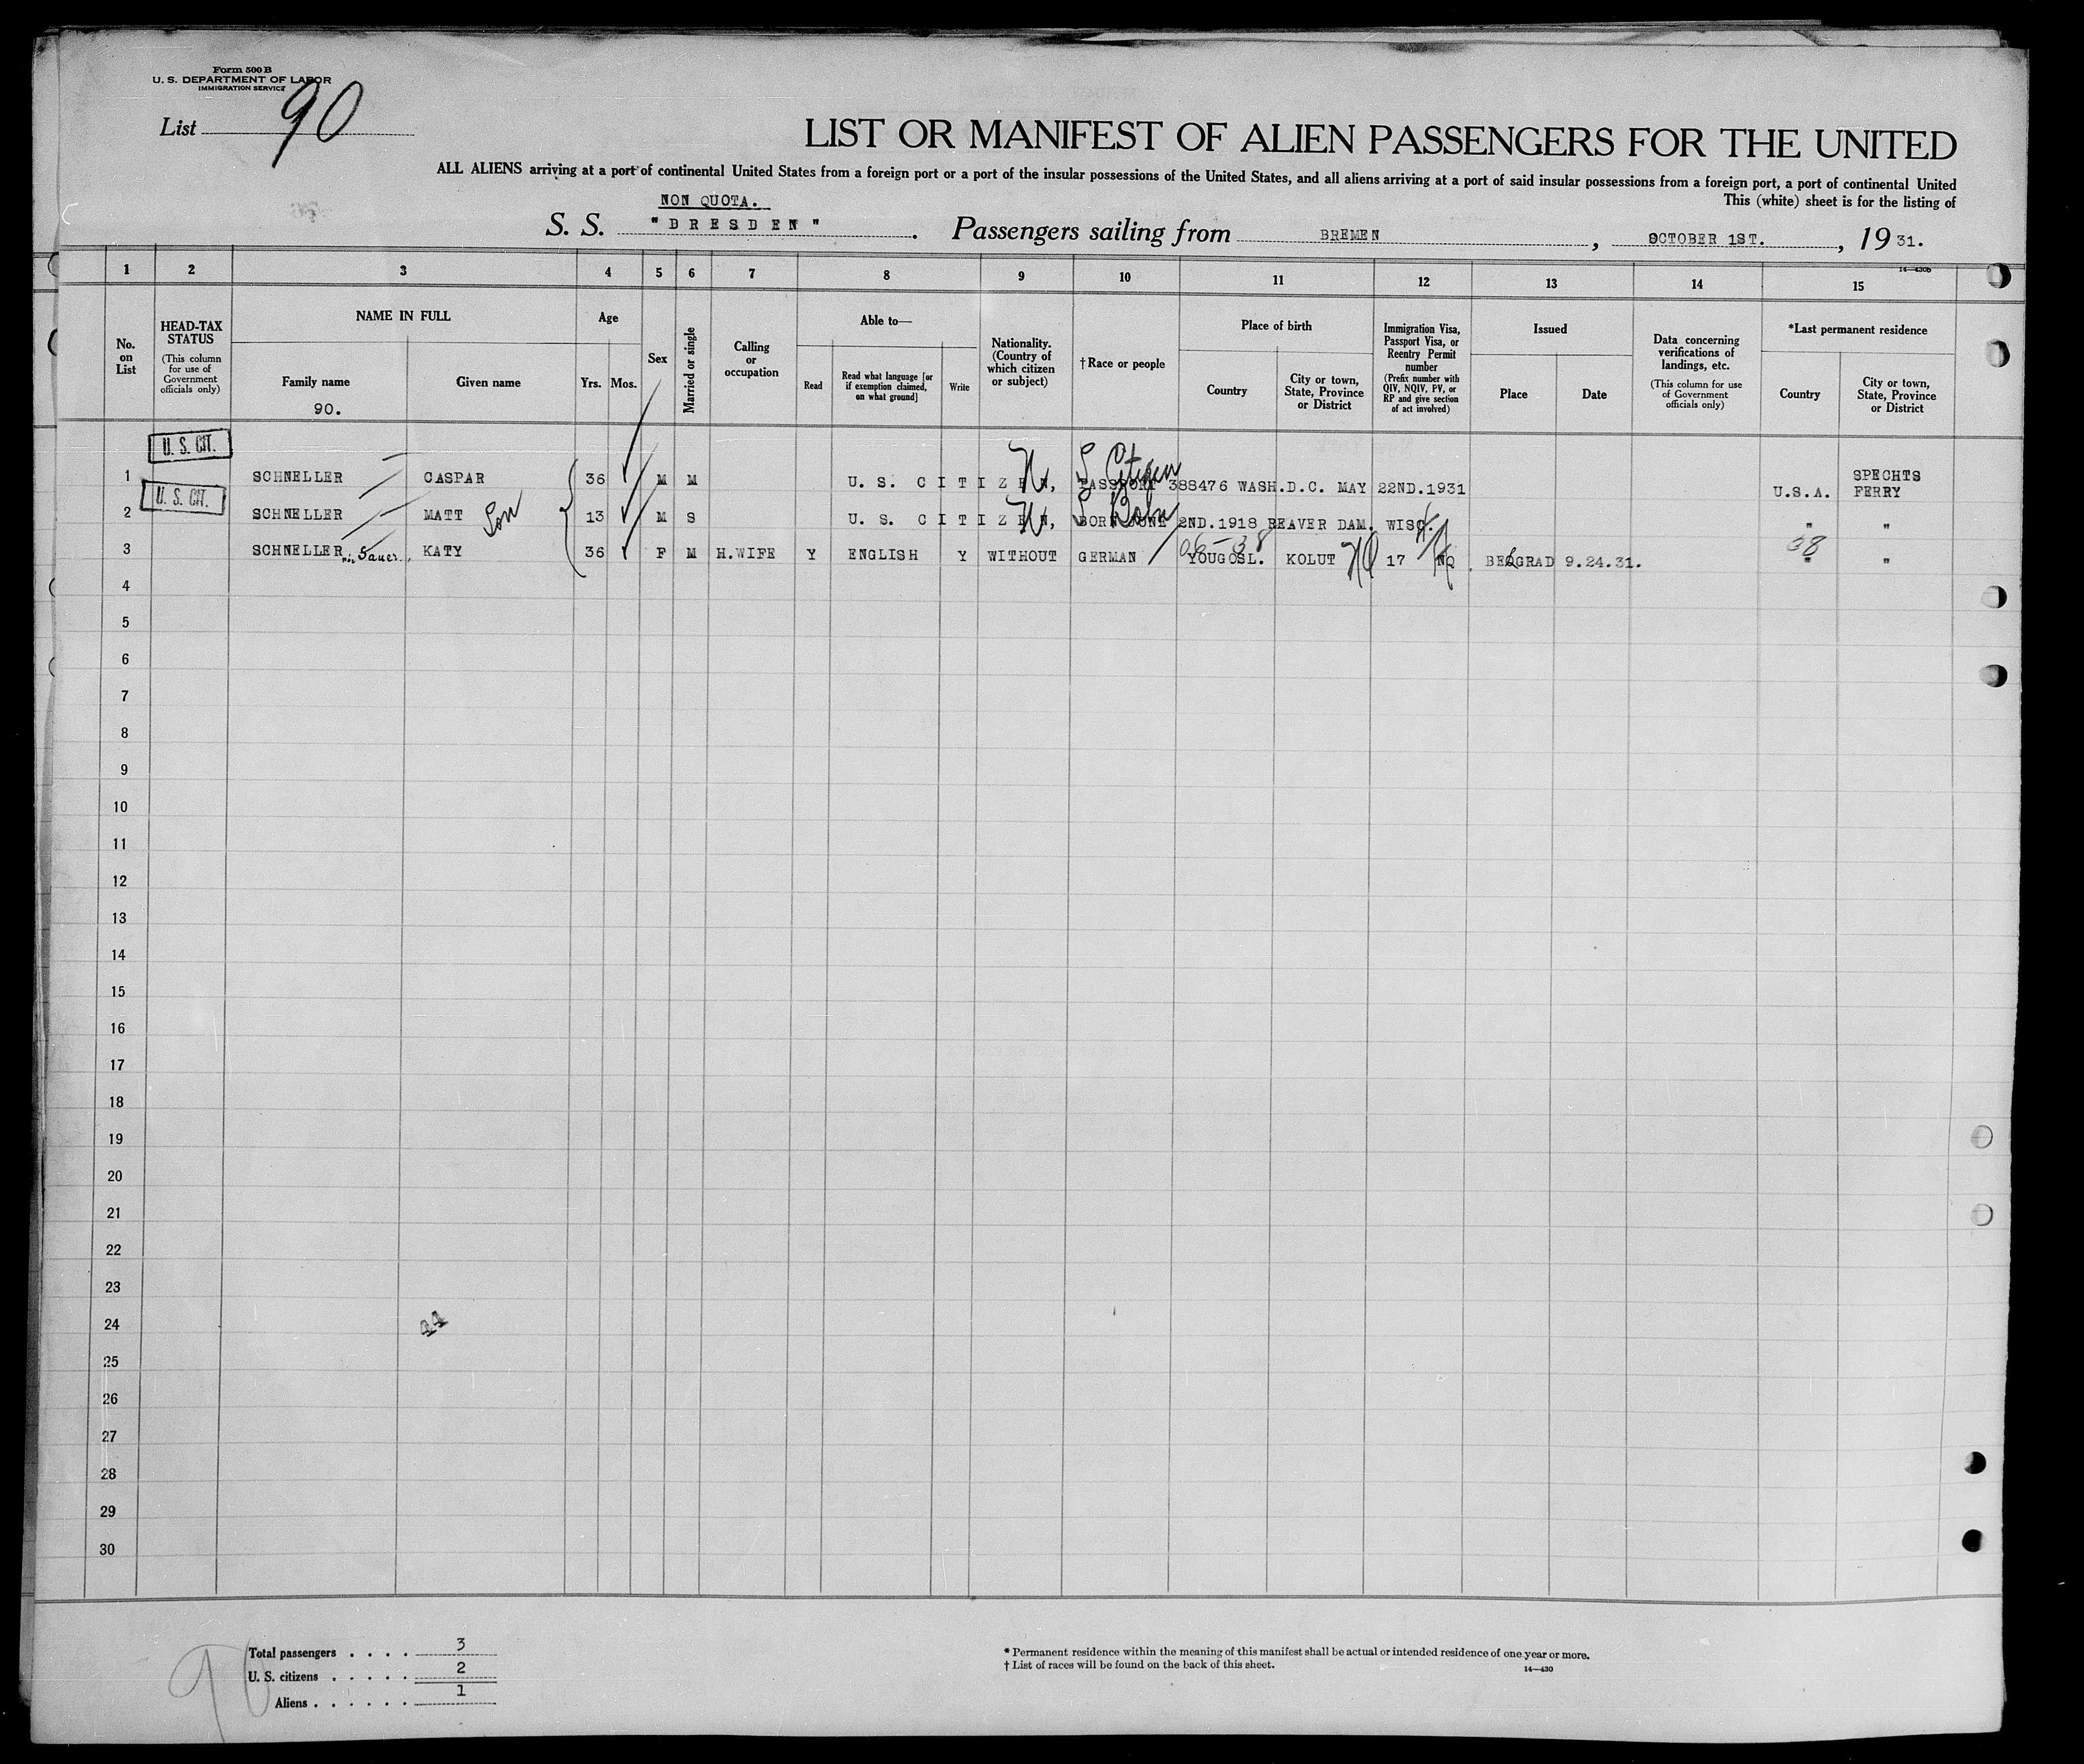 Form 500 B
U. S. DEPARTMENT OF LABOR
IMMIGRATION SERVICE
List 90
LIST OR MANIFEST OF ALIEN PASSENGERS FOR THE UNITED
ALL ALIENS arriving at a port of continental United States from a foreign port or a port of the insular possessions of the United States, and all aliens arriving at a port of said insular possessions from a foreign port, a port of continental United
This (white) sheet is for the listing of
NON QUOTA.
S. S. "DRESDEN". Passengers sailing from BREMEN, OCTOBER 1ST., 1931.
14—430b
1 2 3 4 5 6 7 8 9 10 11 12 13 14 15
No. on List
HEAD-TAX STATUS
(This column for use of Government officials only)
NAME IN FULL
Family name
90.
Given name
Age
Yrs. Mos.
Sex
Married or single
Calling or occupation
Able to—
Read
Read what language [or if exemption claimed, on what ground]
Write
Nationality. (Country of which citizen or subject)
†Race or people
Place of birth
Country
City or town, State, Province or District
Immigration Visa, Passport Visa, or Reentry Permit number
(Prefix number with QIV, NQIV, PV, or RP and give section of act involved)
Issued
Place
Date
Data concerning verifications of landings, etc.
(This column for use of Government officials only)
*Last permanent residence
Country
City or town, State, Province or District
U. S. CIT.
1 SCHNELLER CASPAR 36 M M U. S. CITIZEN, PASSPORT 388476 WASH.D.C. MAY 22ND.1931 U.S.A. SPECHTS FERRY
U S Citizen
U. S. CIT.
2 SCHNELLER MATT Son 13 M S U. S. CITIZEN, BORN JUNE 2ND.1918 BEAVER DAM. WISC. " "
U S Born
3 SCHNELLER Sauer KATY 36 F M H.WIFE Y ENGLISH Y WITHOUT GERMAN YOUGOSL. KOLUT 17 NQ. BELGRAD 9.24.31. " "
38
4
5
6
7
8
9
10
11
12
13
14
15
16
17
18
19
20
21
22
23
24
44
25
26
27
28
29
30
Total passengers . . . . 3
U. S. citizens . . . . . 2
Aliens . . . . . . 1
90
* Permanent residence within the meaning of this manifest shall be actual or intended residence of one year or more.
† List of races will be found on the back of this sheet.
14—430